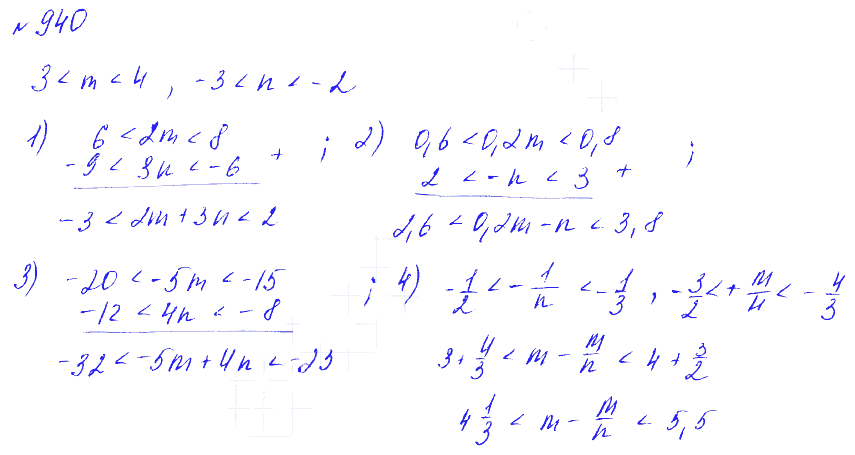 № 940
3 < m < 4 , -3 < n < -2
1) 6 < 2m < 8
-9 < 3n < -6 + ;
-3 < 2m + 3n < 2
2) 0,6 < 0,2m < 0,8
2 < -n < 3 + ;
2,6 < 0,2m - n < 3,8
3) -20 < -5m < -15
-12 < 4n < -8 ;
-32 < -5m + 4n < -23
4) -1/2 < -1/n < -1/3 , -3/2 < + m/n < -4/3
3 + 4/3 < m - m/n < 4 + 3/2
4 1/3 < m - m/n < 5,5